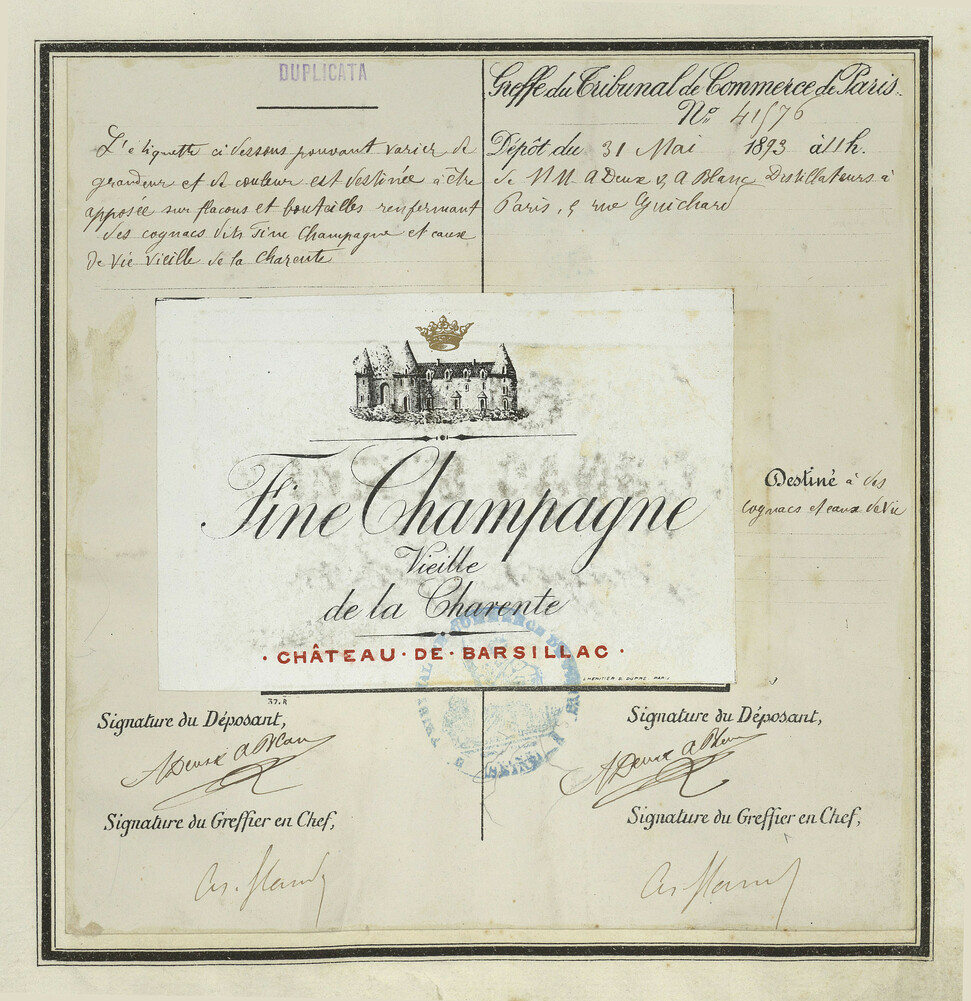 DUPLICATA
L'etiquette ci dessous pouvant varier de
grandeur et de couleur est destinée à être
apposée sur flacons et bouteilles renfermant
des cognacs dits Fine Champagne et eaux
de vie vieille de la Charente
Greffe du Tribunal de Commerce de Paris.
N° 41576
Dépôt du 31 Mai 1893 à 11 h.
de MM A Deux & A Blanc Distillateurs à
Paris, 5 rue Guichard
Fine Champagne
Vieille
de la Charente
CHÂTEAU · DE · BARSILLAC
LHERITIER & DUPRÉ. PARIS
Destiné à des
cognacs et eaux de Vie
TRIBUNAL DE COMMERCE DE
SEINE
37.R
Signature du Déposant,
A Deux A Blanc
Signature du Greffier en Chef,
Signature du Déposant,
A Deux A Blanc
Signature du Greffier en Chef,